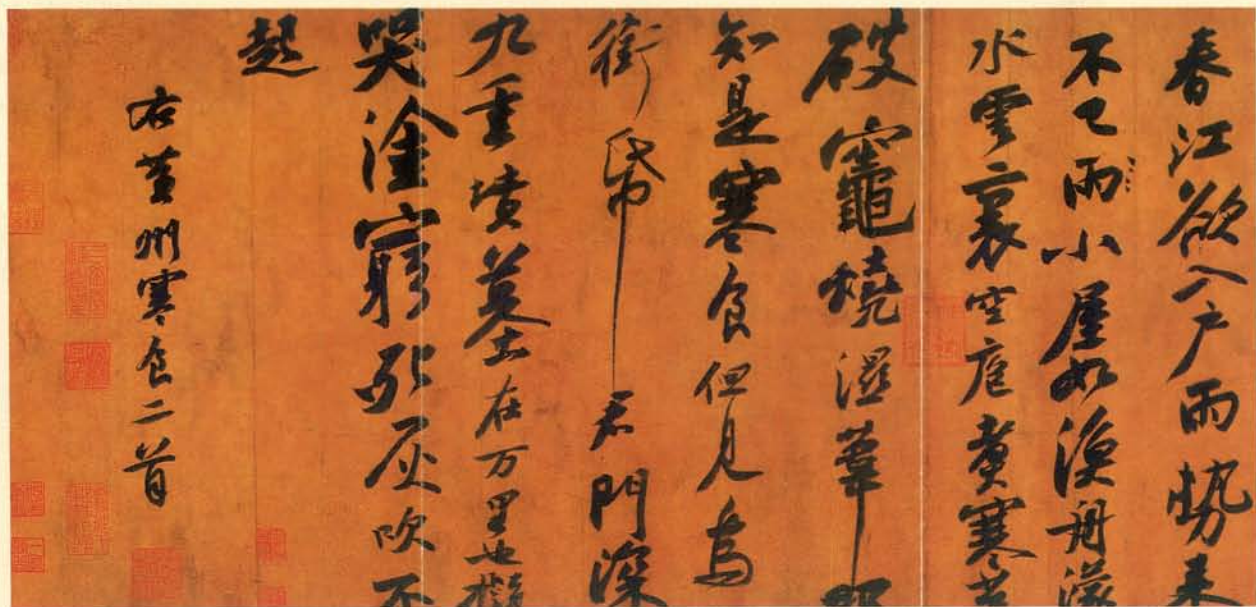 春江欲入户雨勢来
不已雨小屋如漁舟濛
水雲裏空庖煮寒菜
破竈燒濕葦那
知是寒食但見烏
銜帋君門深
九重墳墓在万里也擬
哭塗窮死灰吹不
起
右黄州寒食二首